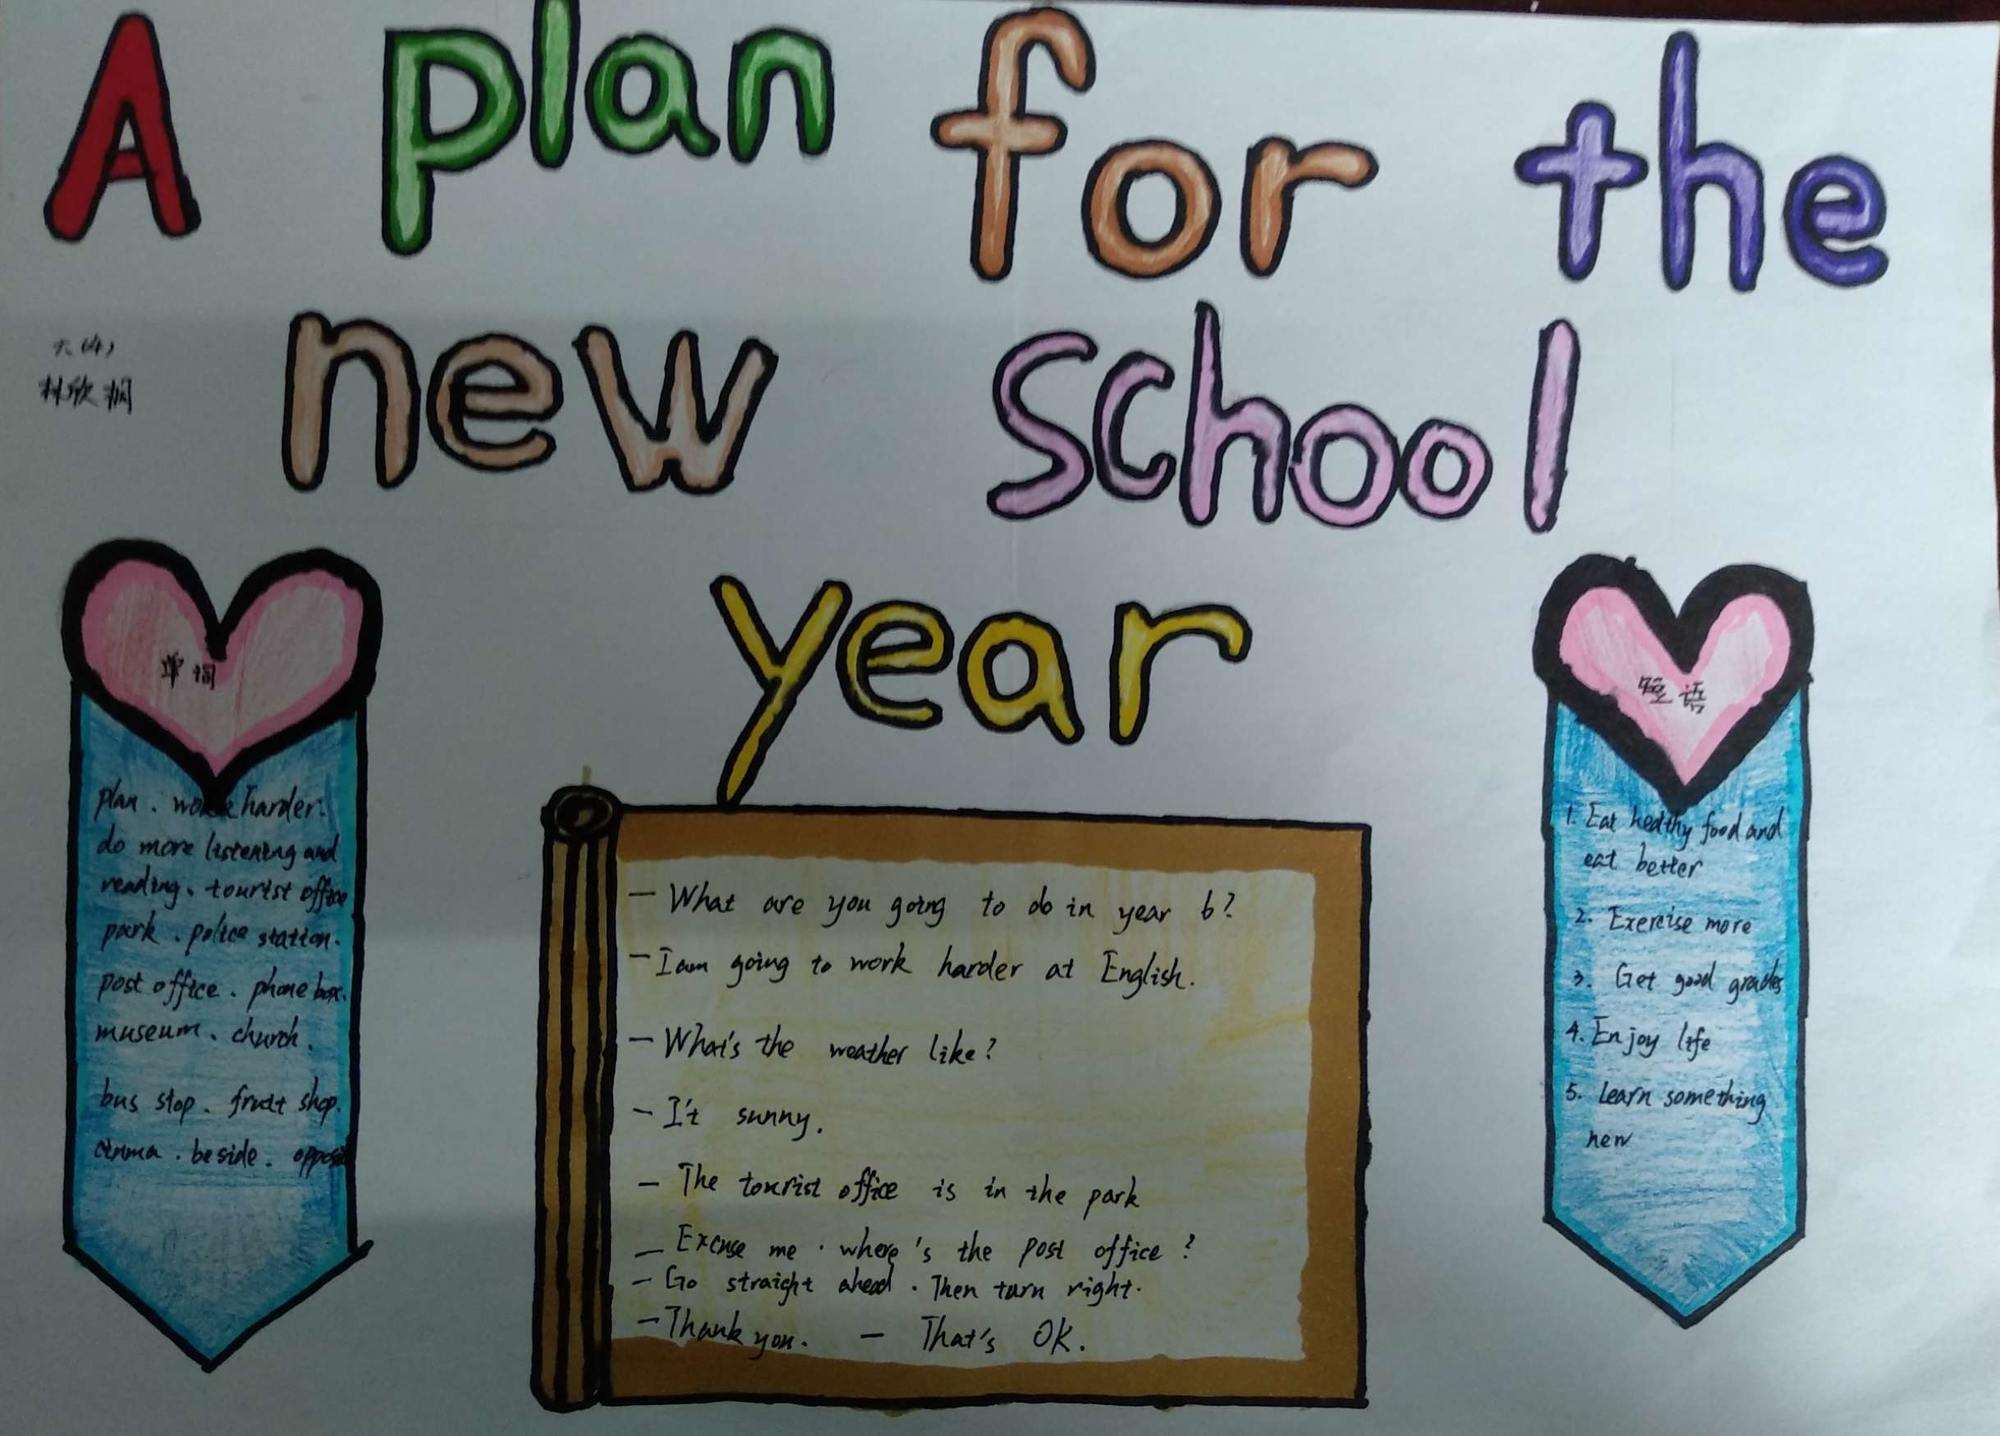 A plan for the
new school
year
六(4)
林欣桐
单词
plan. work harder.
do more listening and
reading. tourist office
park. police station.
post office. phone box.
museum. church.
bus stop. fruit shop.
cinma. beside.
- What are you going to do in year 6?
- I am going to work harder at English.
- What's the weather like?
- I't sunny.
- The tourist office is in the park
- Excuse me. where's the post office?
- Go straight ahead. Then turn right.
- Thank you. - That's OK.
短语
1. Eat healthy food and
eat better
2. Exercise more
3. Get good grades
4. Enjoy life
5. Learn something
new